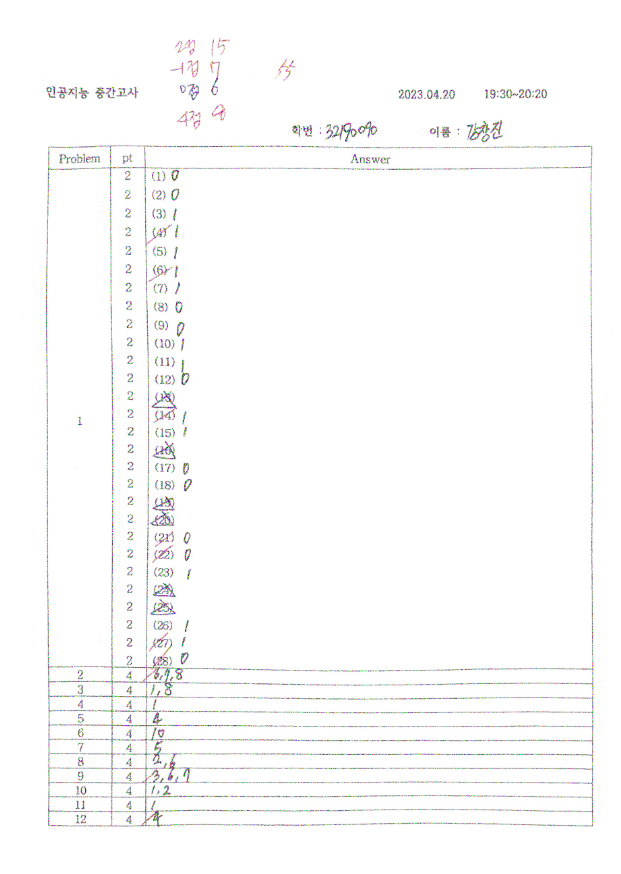 2점 15
-1점 7 55
인공지능 중간고사 0점 6 2023.04.20 19:30~20:20
4점 8
학번 : 32190090 이름 : 김창진
Problem pt Answer
2 (1) 0
2 (2) 0
2 (3) 1
2 (4) 1
2 (5) 1
2 (6) 1
2 (7) 1
2 (8) 0
2 (9) 0
2 (10) 1
2 (11) 1
2 (12) 0
2 (13)
1 2 (14) 1
2 (15) 1
2 (16)
2 (17) 0
2 (18) 0
2 (19)
2 (20)
2 (21) 0
2 (22) 0
2 (23) 1
2 (24)
2 (25)
2 (26) 1
2 (27) 1
2 (28) 0
2 4 3,7,8
3 4 1,8
4 4 1
5 4 4
6 4 10
7 4 5
8 4 2,6
9 4 3,6,7
10 4 1,2
11 4 1
12 4 4